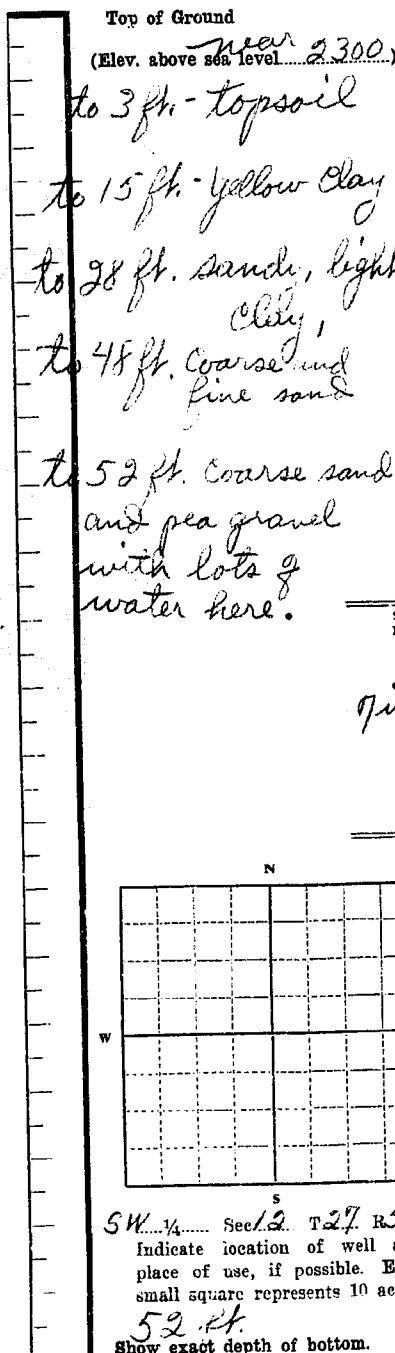 Top of Ground
near
(Elev. above sea level 2300)
to 3 ft. - topsoil
to 15 ft. - yellow clay
to 28 ft. sandy, light
clay,
to 48 ft. coarse and
fine sand
to 52 ft. coarse sand
and pea gravel
with lots of
water here.
N
W
S
SW 1/4 Sec 12 T 27 R
Indicate location of well
place of use, if possible.
small square represents 10
52 ft.
Show exact depth of bottom.